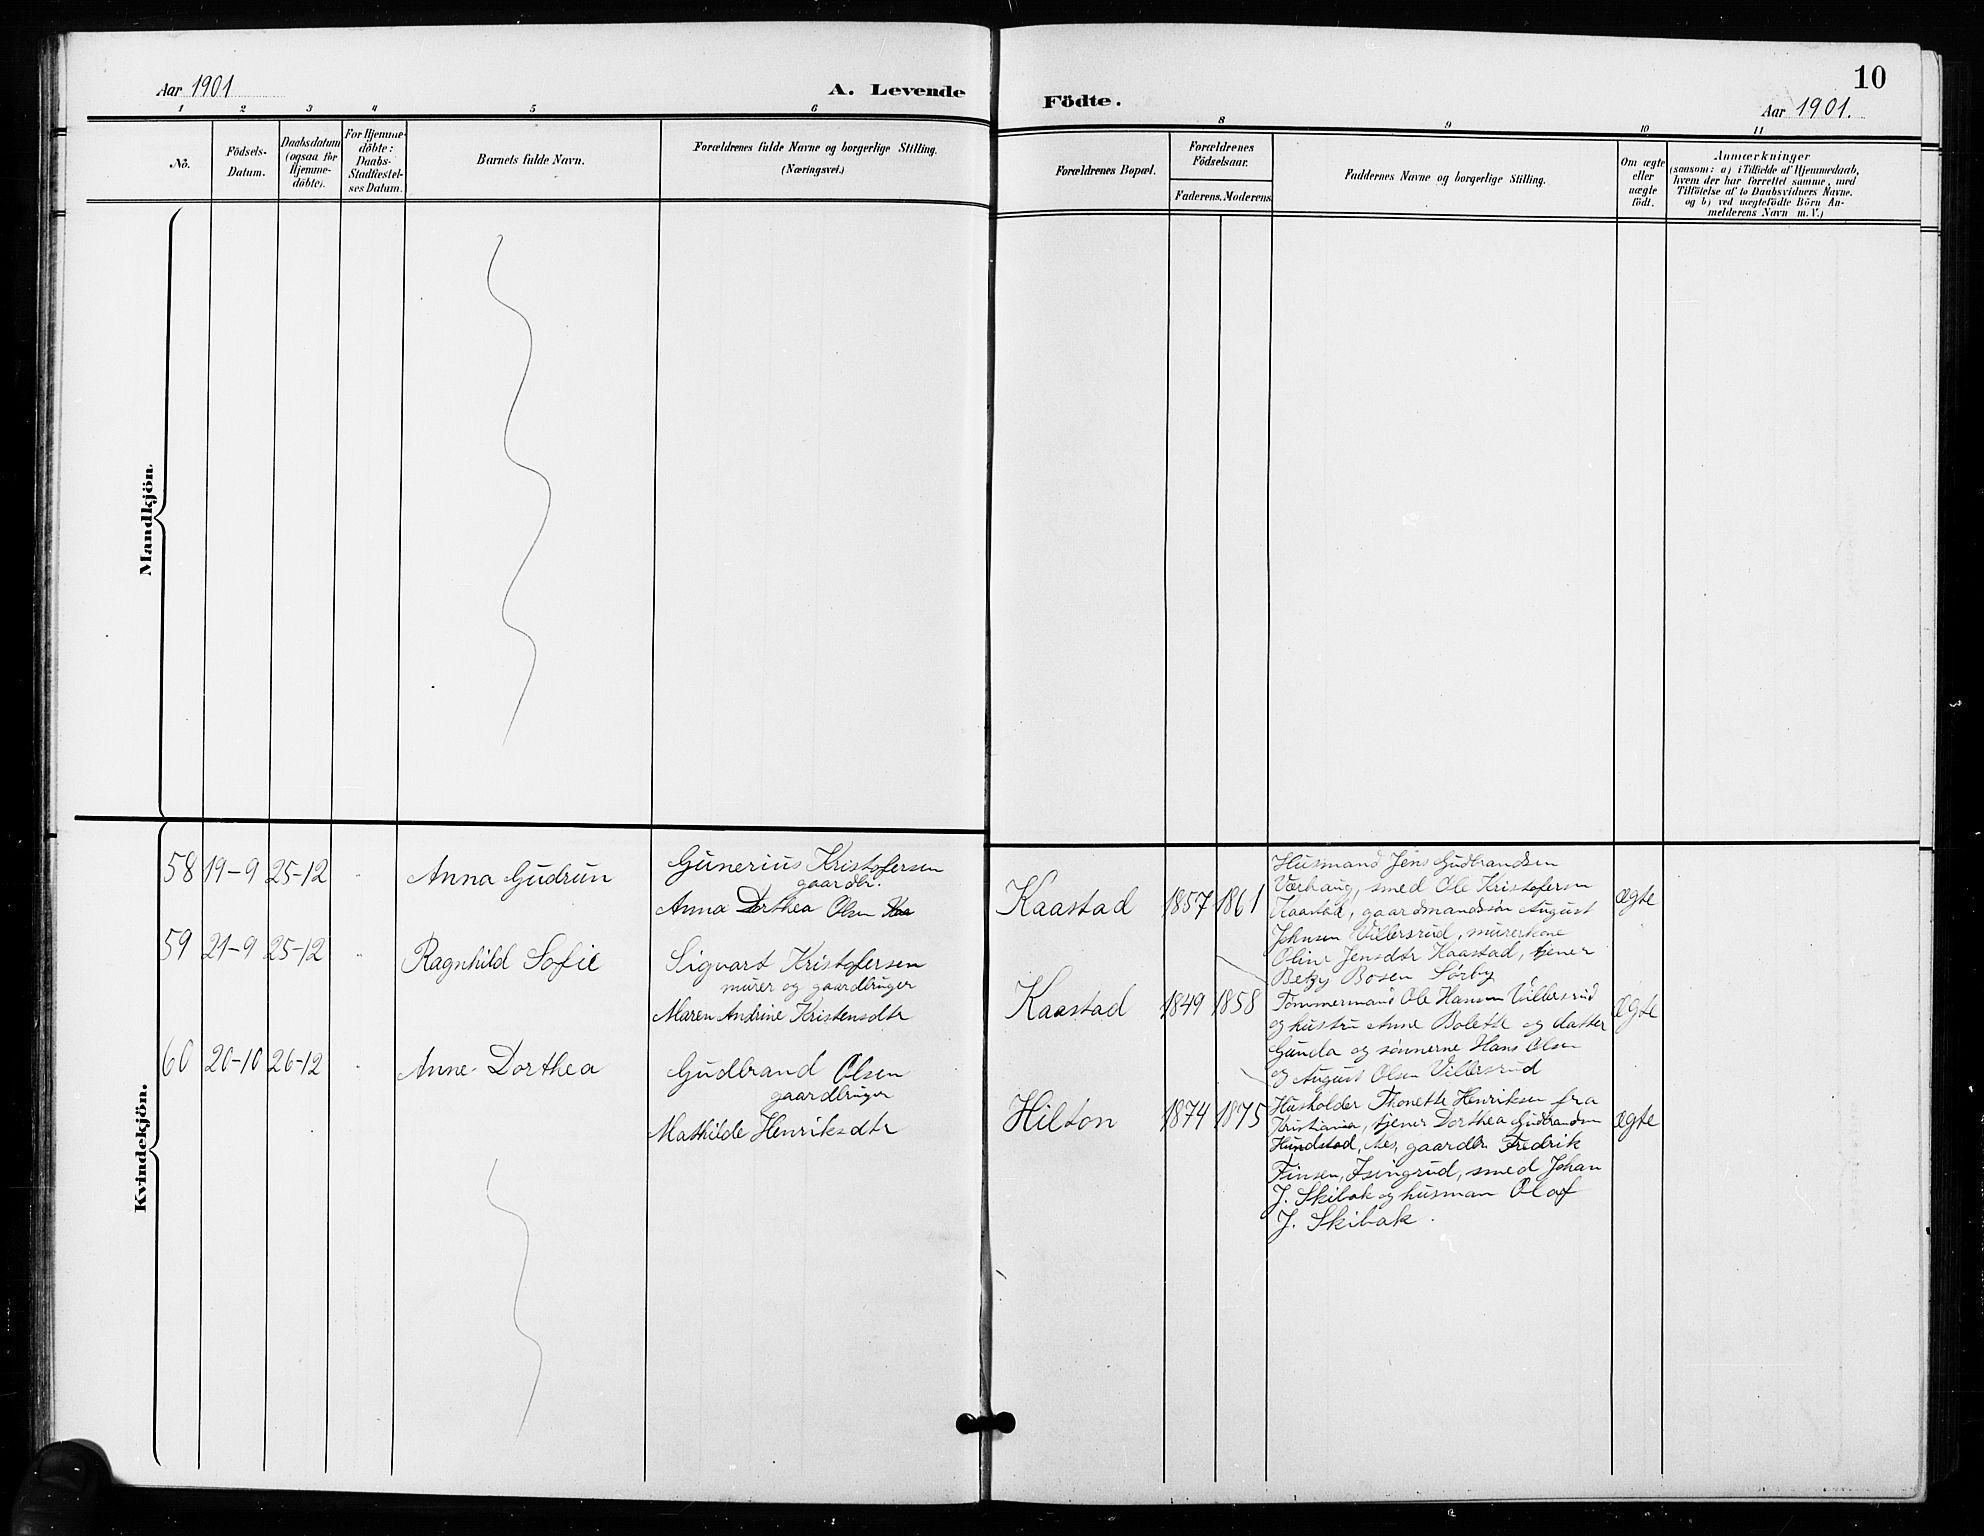 Aar 1901
A. Levende
Födte.
10
Aar 1901.
1 2 3 4 5 6 8 9 10 11
No.
Födsels-
Datum.
Daabsdatum
(ogsaa for
Hjemme-
döbte).
For Hjemme-
döbte:
Daabs-
Stadfæstel-
ses Datum.
Barnets fulde Navn.
Forældrenes fulde Navne og borgerlige Stilling.
(Næringsvei.)
Forældrenes Bopæl.
Forældrenes
Födselsaar.
Faderens. Moderens.
Faddernes Navne og borgerlige Stilling.
Om ægte
eller
uægte
födt.
Anmærkninger
(saasom: a) i Tilfælde af Hjemmedaab,
hvem der har forrettet samme, med
Tilföielse af to Daabsvidners Navne.
og b) ved uægtefödte Börn An-
melderens Navn m. V.)
Mandkjön.
Kvindekjön.
58 19-9 25-12 " Anna Gudrun
Gunerius Kristofersen
gaardbr.
Anna Dorthea Olsen Kaa
Kaastad 1857 1861
Husmand Jens Gudbrandsen
Værhaug, smed Ole Kristofersen
Kaastad, gaardmandssøn August
Johnsen Villersrud, murerkone
Oline Jensdtr Kaastad, tjener
Betzy Bosen Sørby
ægte
59 21-9 25-12 " Ragnhild Sofie
Sigvart Kristofersen
murer og gaardbruger
Maren Andrine Kristensdtr
Kaastad 1849 1858
Tømmermand Ole Hansen Villersrud
og hustru Anne Bolette og datter
Gunda og sønnerne Hans Olsen
og August Olsen Villersrud
ægte
60 20-10 26-12 " Anne Dorthea
Gudbrand Olsen
gaardbruger
Mathilde Henriksdtr
Hilton 1874 1875
Husholder Thonette Henriksen fra
Kristiania, tjener Dorthea Gudbrandsen
Hundstad, Aes, gaardbr. Fredrik
Finsen, Isingrud, smed Johan
J. Skibak og husman Olaf
J. Skibak.
ægte